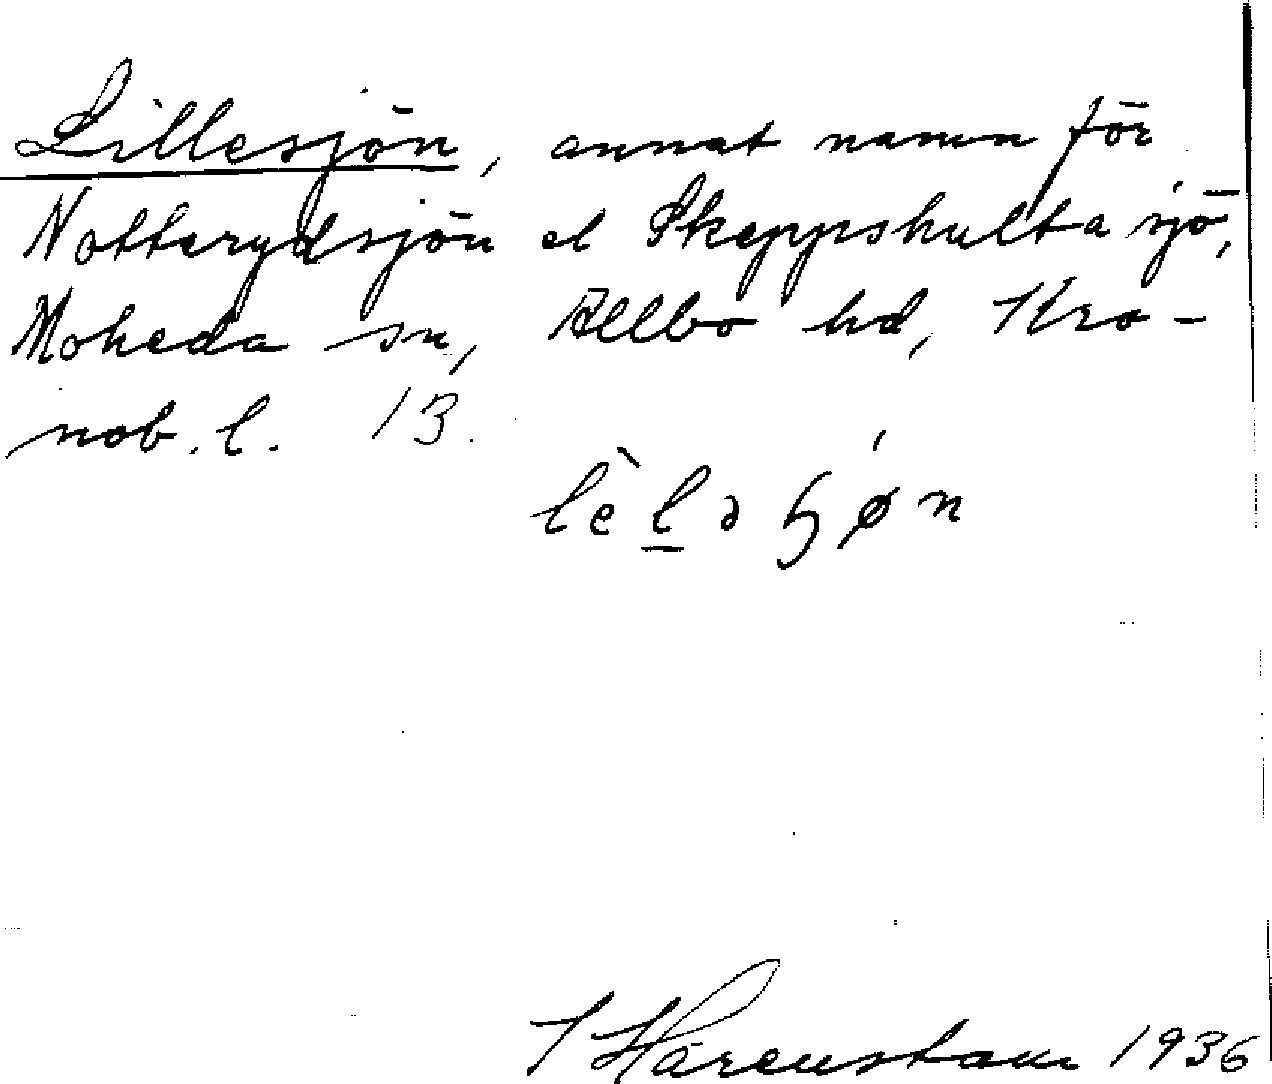 Lillesjön, annat namn för
Notterydsjön el Skeppshulta sjö,
Moheda sn, Allbo hd, Kro-
nob. l. 13.
lèlə ɧǿn
Härenstam 1936